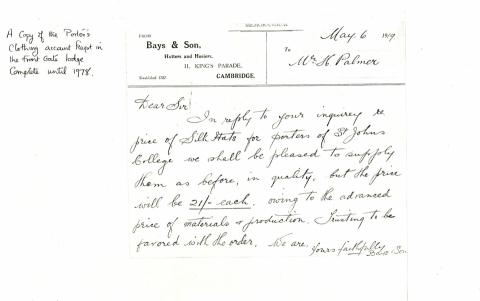 A Copy of the Porter's
Clothing account kept in
the Front Gate lodge
Complete until 1978.
FROM
Bays & Son,
Hatters and Hosiers,
11, KING'S PARADE,
CAMBRIDGE.
May 6 1919
To
Mr H. Palmer
Dear Sir
In reply to your inquirey re
price of Silk Hats for porters of St Johns
College we shall be pleased to supply
them as before, in quality, but the price
will be 21/- each, owing to the advanced
price of materials & production. Trusting to be
favored with the order. We are.
Yours faithfully
Bays & Son